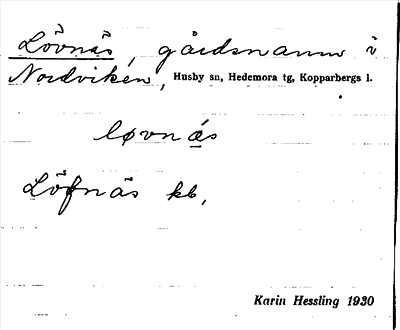 Lövnäs, gårdsnamn i
Nordviken, Husby sn, Hedemora tg, Kopparbergs l.
løvnǻs
Löfnäs kb,
Karin Hessling 1930